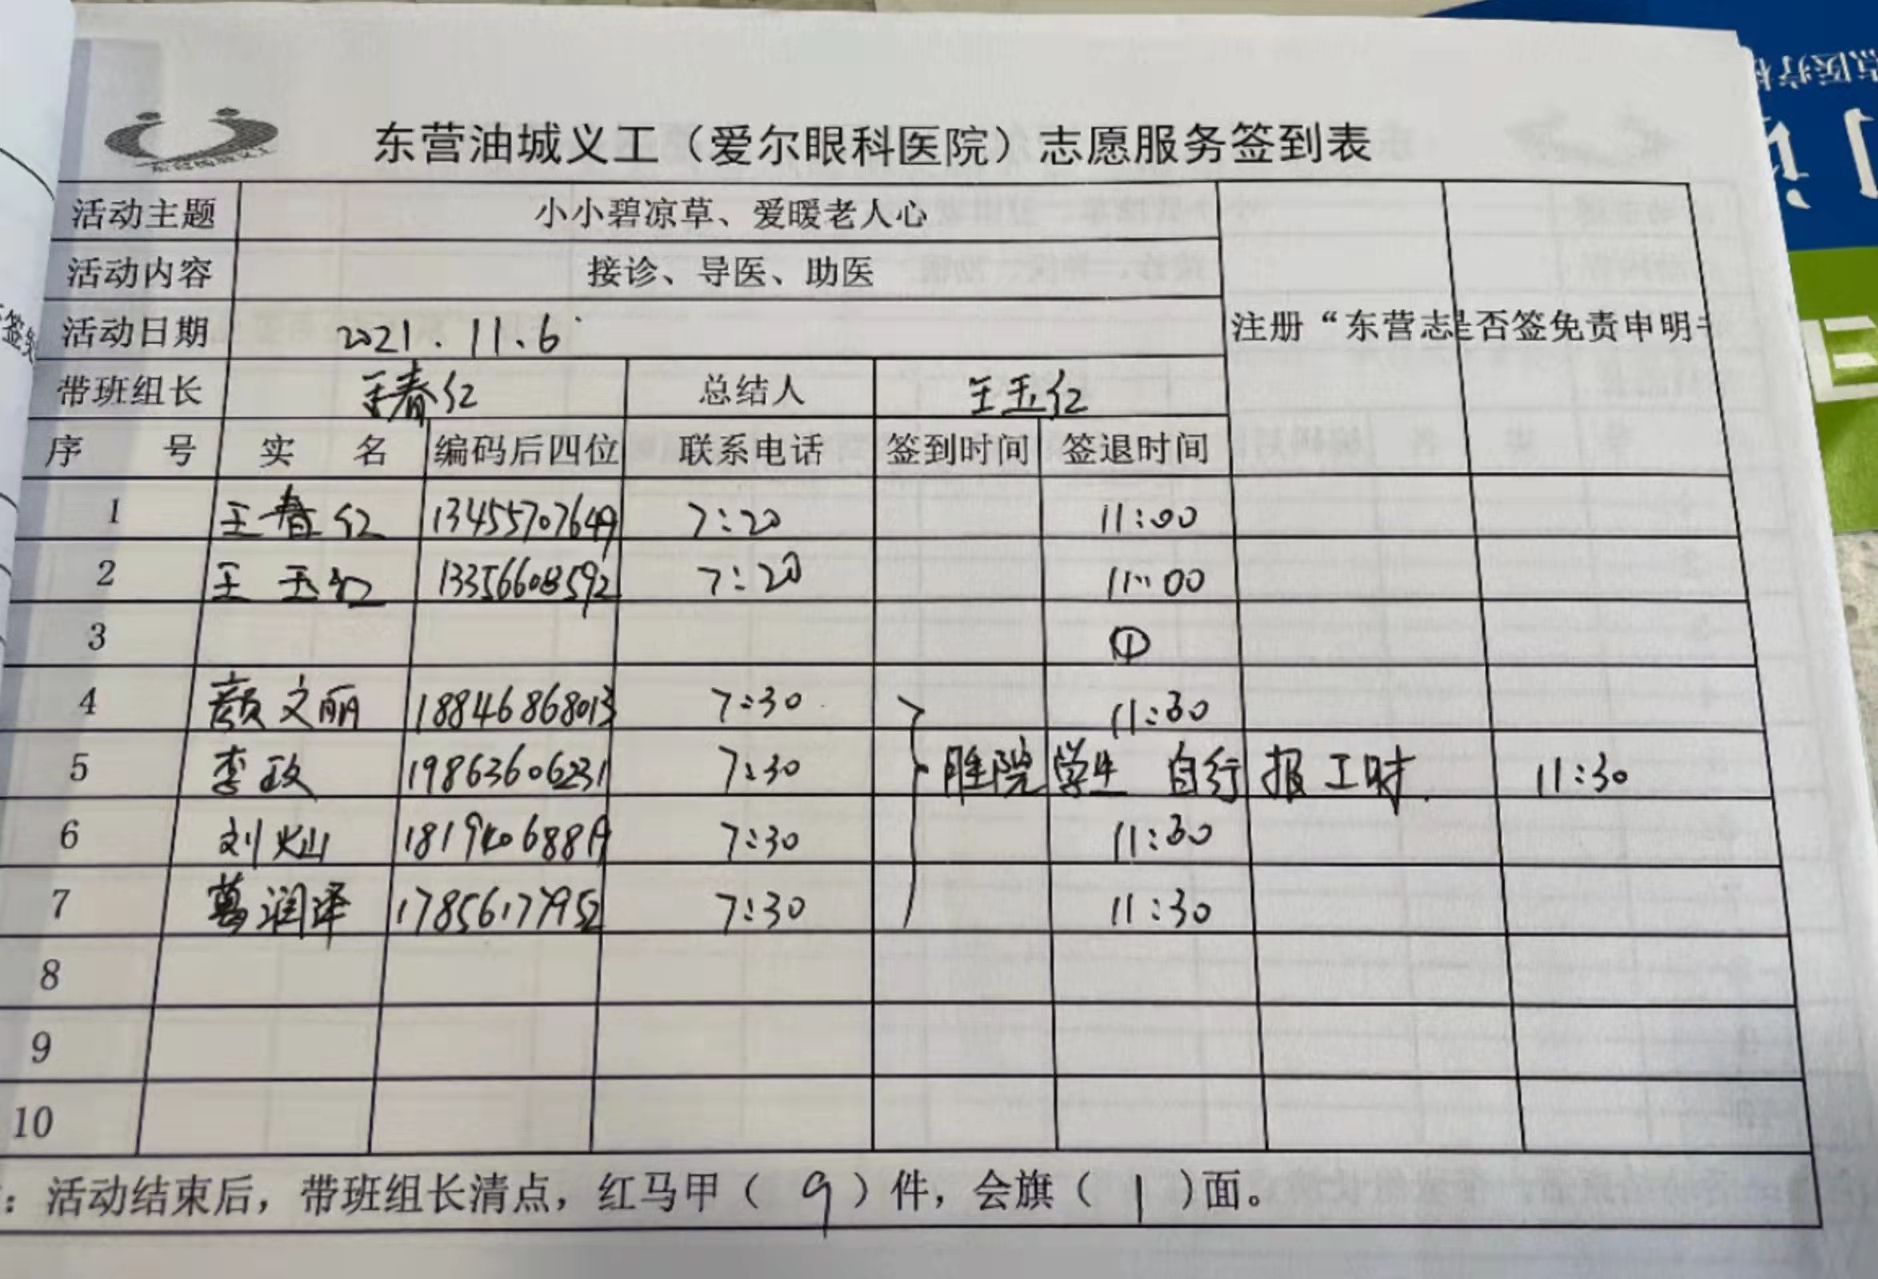 东营油城义工
东营油城义工（爱尔眼科医院）志愿服务签到表
活动主题 小小碧凉草、爱暖老人心
活动内容 接诊、导医、助医
活动日期 2021.11.6 注册“东营志 是否签免责申明书
带班组长 王春红 总结人 王玉红
序 号 实 名 编码后四位 联系电话 签到时间 签退时间
1 王春红 13455707649 7:20 11:00
2 王玉红 13356603592 7:20 11:00
3 ①
4 颜文丽 18846868013 7:30 11:30
5 李政 19863606231 7:30 胜院学生 自行报工时. 11:30
6 刘灿 18194068819 7:30 11:30
7 葛润泽 17856177952 7:30 11:30
8
9
10
：活动结束后，带班组长清点，红马甲（ 9 ）件，会旗（ 1 ）面。
点医疗机